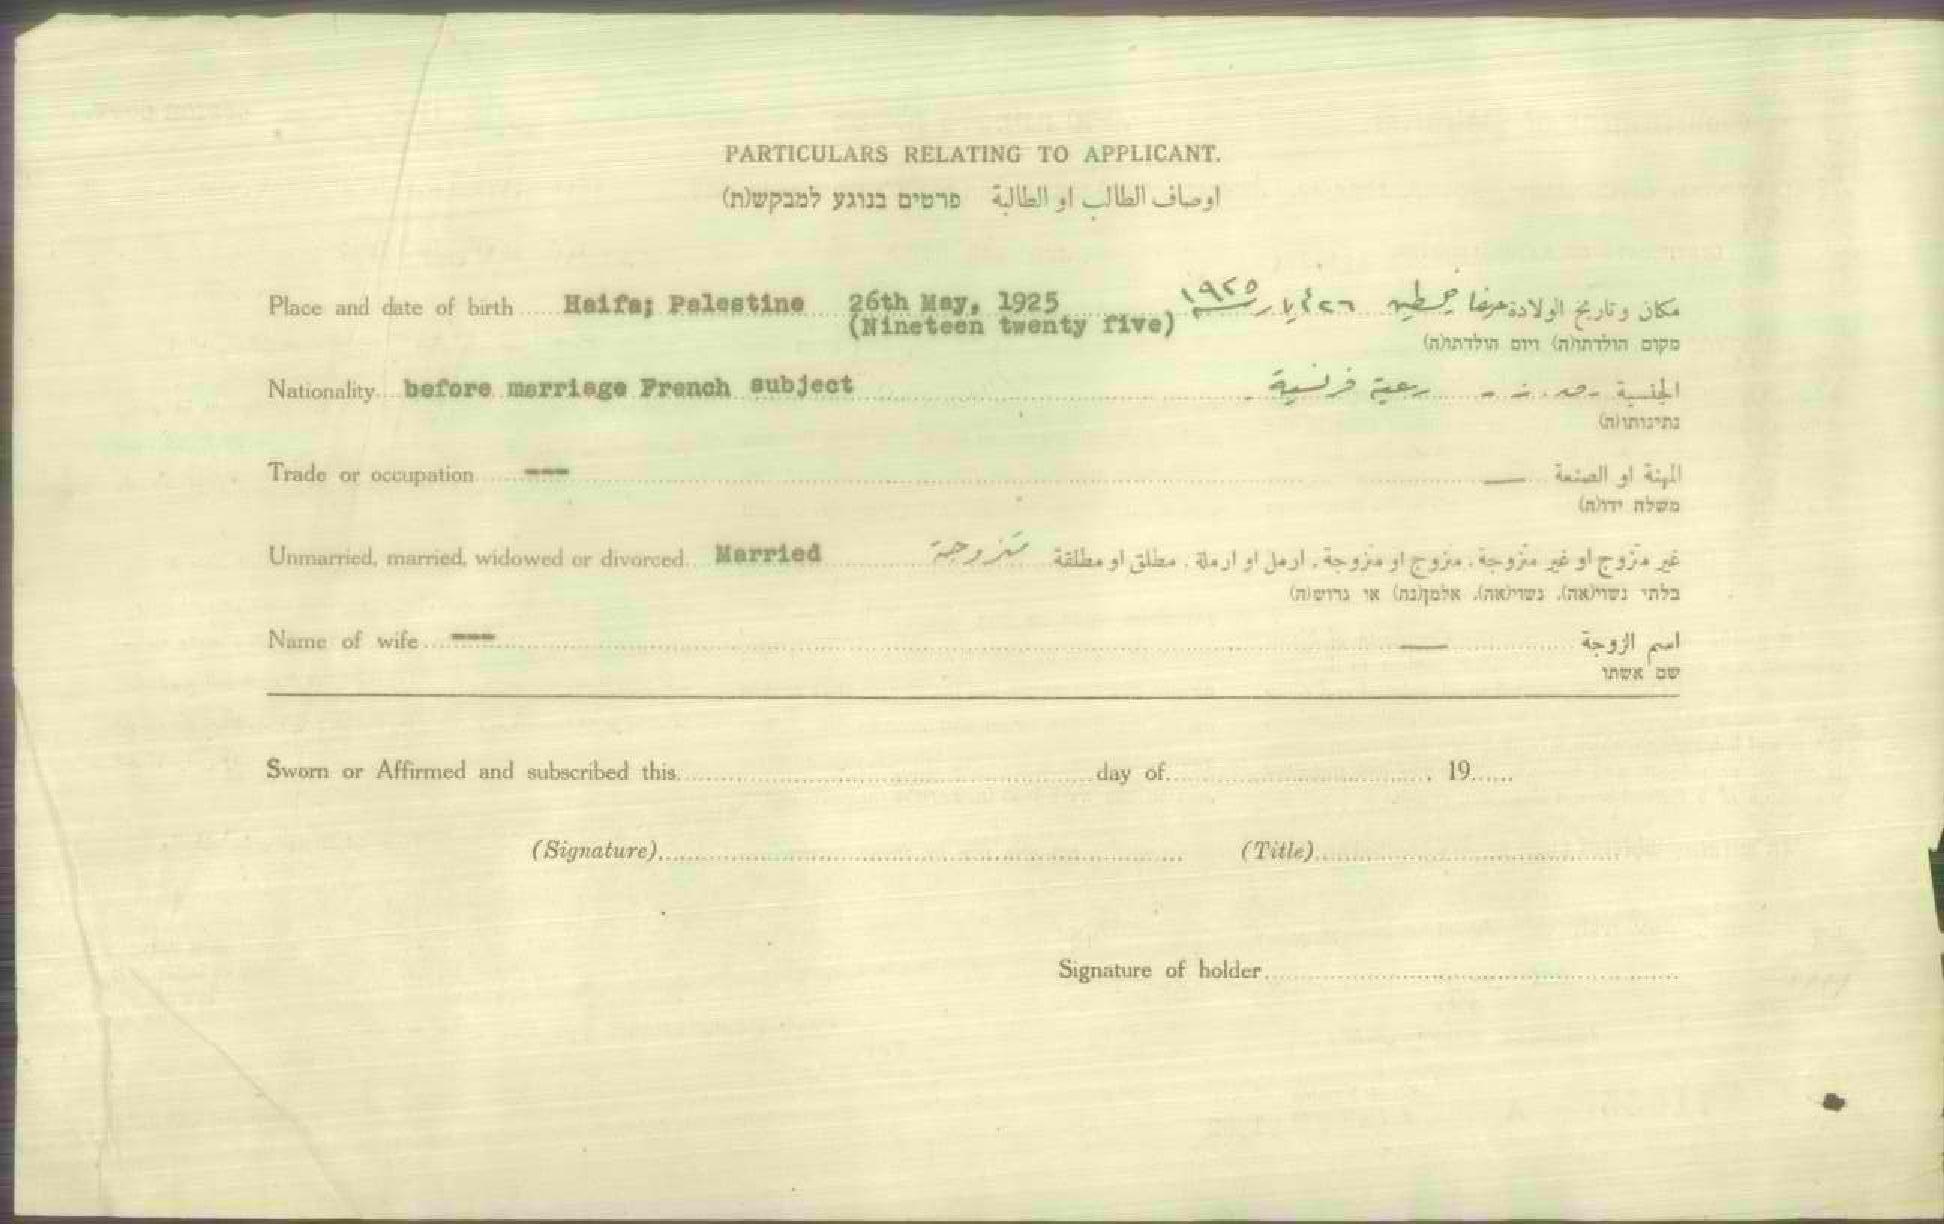 PARTICULARS RELATING TO APPLICANT.
اوصاف الطالب او الطالبة פרטים בנוגע למבקש(ת)
Place and date of birth Haifa; Palestine 26th May, 1925 مكان وتاريخ الولادة حيفا فلسطين ٢٦ أيار سنة ١٩٢٥
(Nineteen twenty five)
מקום הולדתו(ה) ויום הולדתו(ה)
Nationality before marriage French subject الجنسية رعية فرنسية
נתינותו(ה)
Trade or occupation --- المهنة او الصنعة —
משלח ידו(ה)
Unmarried, married, widowed or divorced Married غير متزوج او غير متزوجة، متزوج او متزوجة، ارمل او ارملة، مطلق او مطلقة متزوجة
בלתי נשוי(אה), נשוי(אה), אלמן(נה) או גרוש(ה)
Name of wife --- اسم الزوجة —
שם אשתו
Sworn or Affirmed and subscribed this day of 19
(Signature) (Title)
Signature of holder